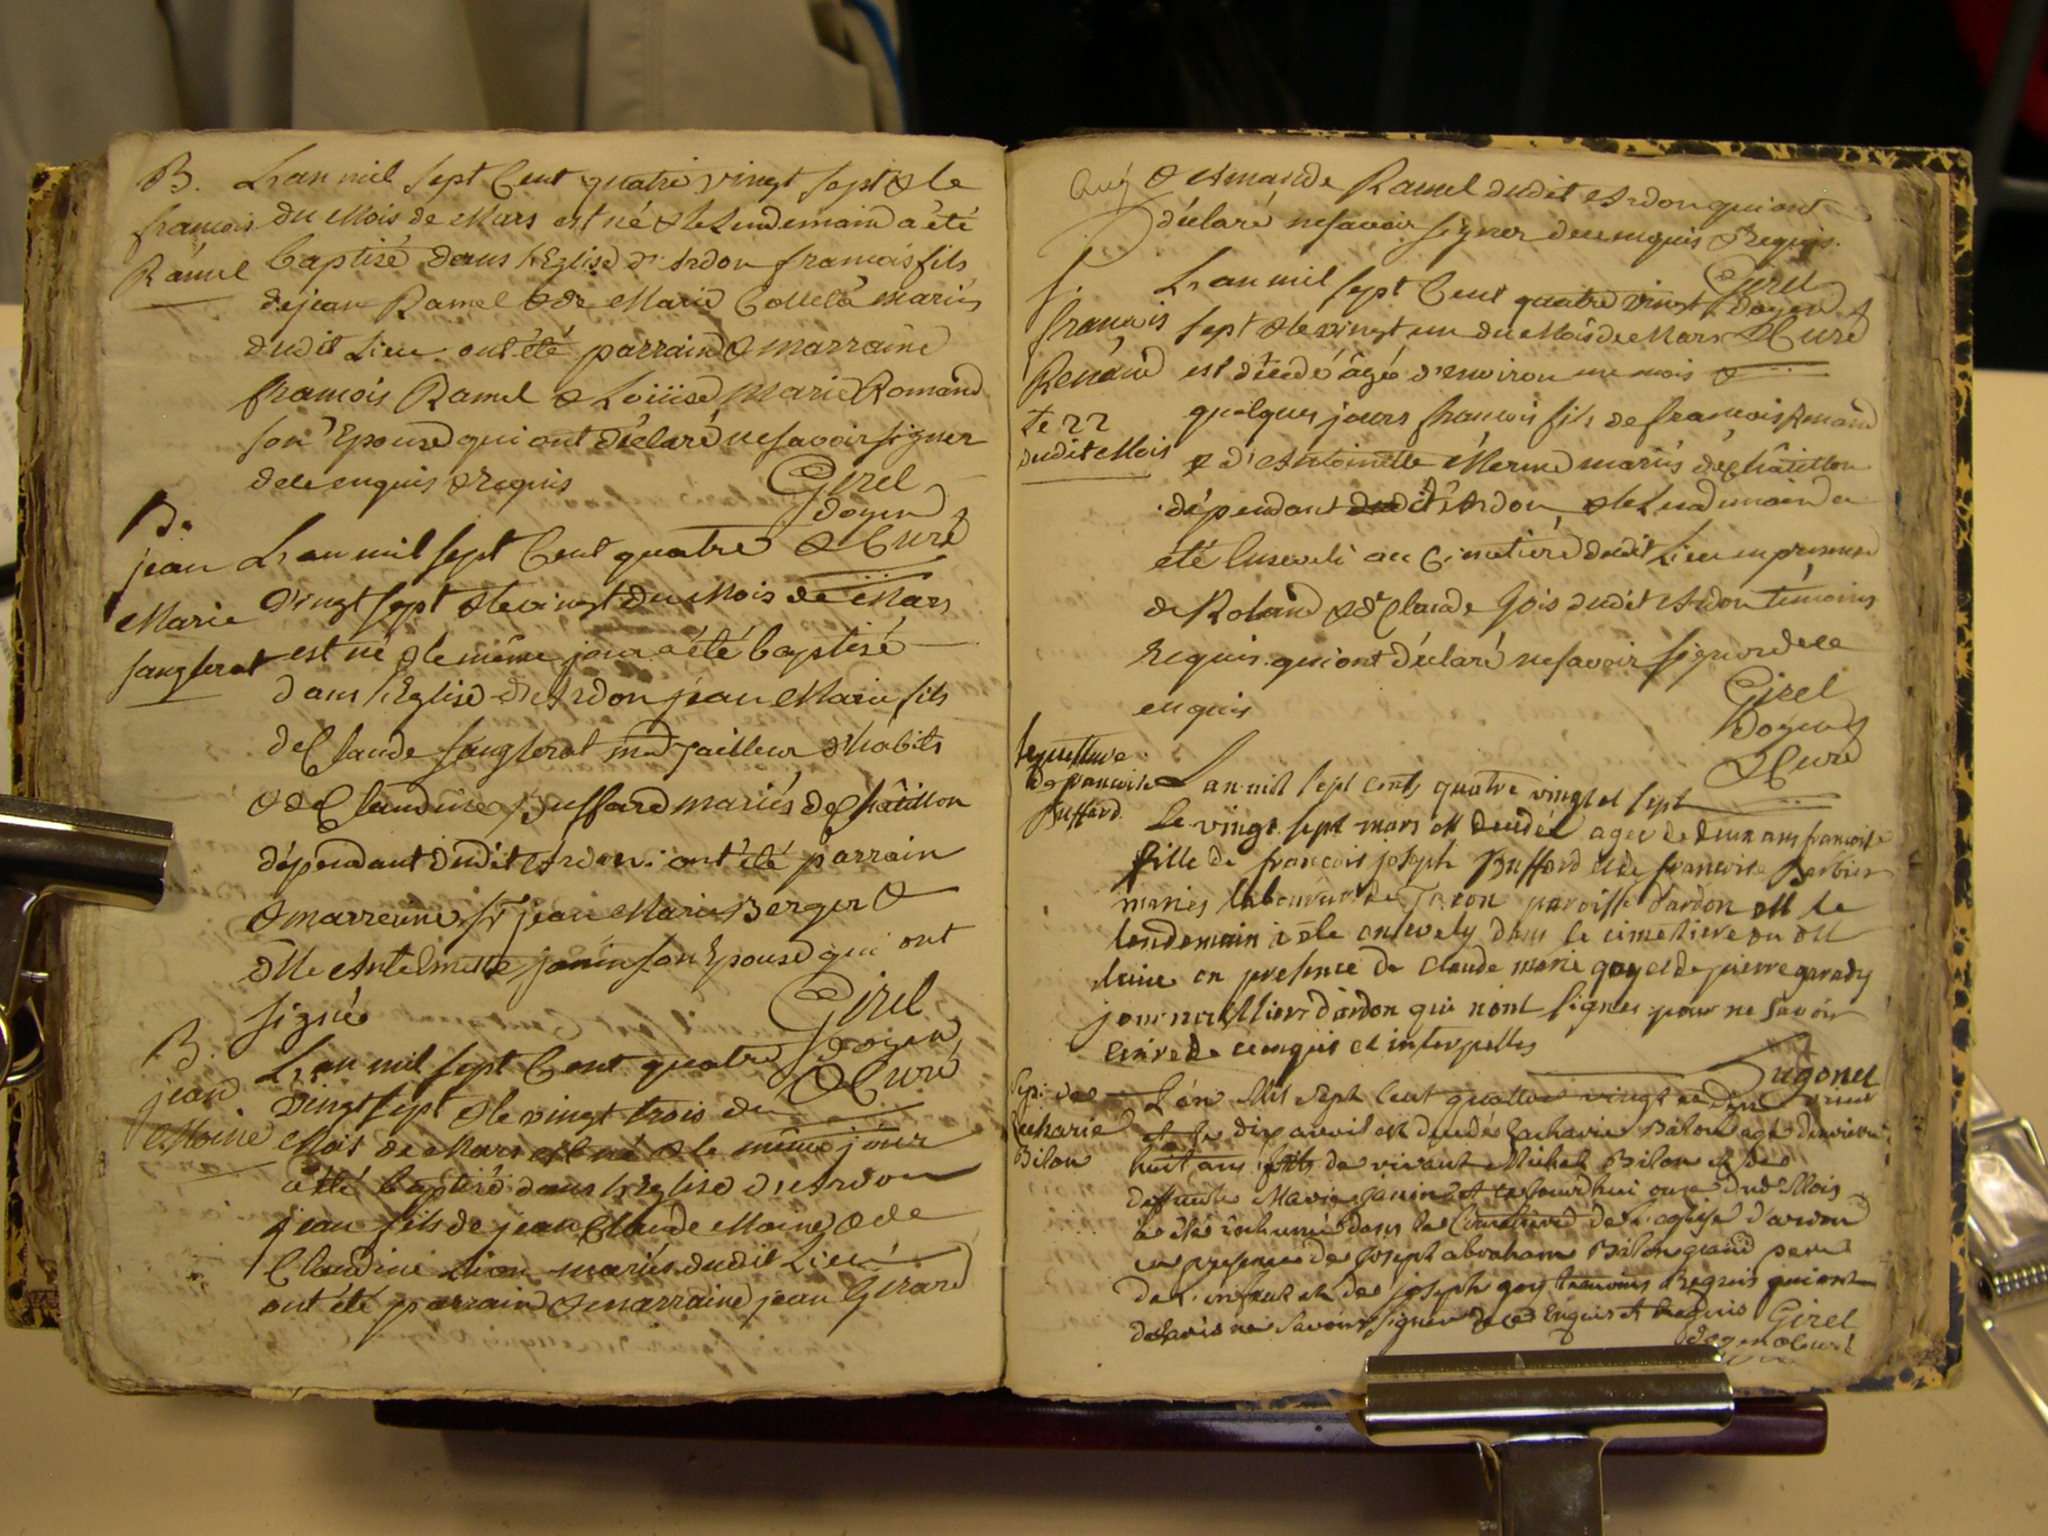 B. L'an mil sept Cent quatre vingt sept & le
francois du Mois de Mars est né & le Lendemain a été
Ramel baptisé dans l'Eglise d'Ardon francois fils
de jean Ramel & de Marie Collet mariés
dudit Lieu ont été parrain & marraine
francois Ramel & Loüise Marie Romand
son Epouse qui ont déclaré ne savoir signer
de ce enquis & requis Girel
doyen
& Curé
B.
jean L'an mil sept Cent quatre
Marie vingt sept & le vingt du Mois de Mars
Sanglerat est né & le même jour a été baptisé
dans l'Eglise d'Ardon jean Marie fils
de Claude Sanglerat md Tailleur d'habits
& de Claudine Buffard mariés de Châtillon
dépendant dudit Ardon ont été parrain
& marreine Sr jean Marie Berger &
dlle Antelmette janin son Epouse qui ont
signé Girel
doyen
& Curé
B. L'an mil sept Cent quatre
jean vingt sept & le vingt trois du
Moine Mois de Mars est né & le même jour
a été baptisé dans l'Eglise d'Ardon
jean fils de jean Claude Moine & de
Claudine Lion mariés dudit Lieu
ont été parrain & marraine jean Girard
& Amande Ramel dudit Ardon qui ont
déclaré ne savoir signer de ce enquis & Requis.
Girel
doyen
& Curé
S. L'an mil sept Cent quatre vingt
francois sept & le vingt un du Mois de Mars
Renand est décédé âgé d'environ un mois &
le 22 quelques jours francois fils de francois Renand
dudit Mois & d'Antoinette Mermet mariés de Châtillon
dépendant dudit Ardon & le Lendemain a
été Enseveli au Cimetière dudit Lieu en presence
de Roland & de Claude Gois dudit Ardon témoins
Requis qui ont déclaré ne savoir signer de ce
enquis Girel
Doyen
& Curé
sepulture
de francoise L'an mil sept cents quatre vingt et sept
Buffard. Le vingt sept mars est décédée agée de deux ans francoise
fille de francois joseph Buffard et de francoise Barbier
mariés laboureurs de paroisse d'ardon et le
lendemain a été ensevely dans le cimetiere du dit
lieu en presence de Claude marie goy et de pierre
journailliers d'ardon qui n'ont signés pour ne savoir
ecrire de ce enquis et interpellés
Sugonet
vicaire
Sep: de L'an Mil Sept Cent quattre vingt et Sept
Zacharie et le dix avril est décédé Zacharie Bilon agé d'environ
Bilon huit ans fils de vivant Michel Bilon et de
deffunte Marie Janin et cejourd'hui onze dud Mois
a été inhumé dans le Cimetiere de l'eglise d'ardon
en presence de Joseph abraham Bilon grand pere
de l'enfant et de joseph goy temoins Requis qui ont
declaré ne Savoir Signer de ce Enquis et Requis Girel
doyen & curé